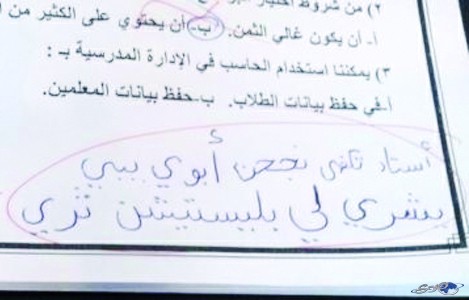 ٢) من شروط اختيار
أ- أن يكون غالي الثمن. ب- أن يحتوي على الكثير من
٣) يمكننا استخدام الحاسب في الإدارة المدرسية بـ :
أ-في حفظ بيانات الطلاب. ب-حفظ بيانات المعلمين.
أستاد تكفى نجحن أبوي يبي
يشري لي بليستيشن ثري